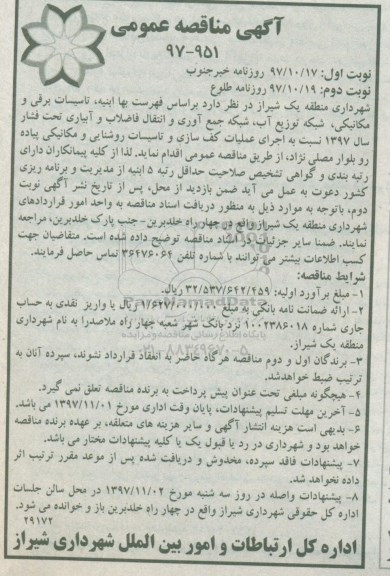 آگهی مناقصه عمومی
۹۷-۹۵۱
نوبت اول: ۹۷/۱۰/۱۷ روزنامه خبرجنوب
نوبت دوم: ۹۷/۱۰/۱۹ روزنامه طلوع
شهرداری منطقه یک شیراز در نظر دارد براساس فهرست بها ابنیه، تاسیسات برقی و
مکانیکی، شبکه توزیع آب، شبکه جمع آوری و انتقال فاضلاب و آبیاری تحت فشار
سال ۱۳۹۷ نسبت به اجرای عملیات کف سازی و تاسیسات روشنایی و مکانیکی پیاده
رو بلوار مصلی نژاد، از طریق مناقصه عمومی اقدام نماید. لذا از کلیه پیمانکاران دارای
رتبه بندی و گواهی تشخیص صلاحیت حداقل رتبه ۵ ابنیه از مدیریت و برنامه ریزی
کشور دعوت به عمل می آید ضمن بازدید از محل، پس از تاریخ نشر آگهی نوبت
دوم، باتوجه به موارد ذیل به منظور دریافت اسناد مناقصه به واحد امور قراردادهای
شهرداری منطقه یک شیراز واقع در چهار راه خلدبرین- جنب پارک خلدبرین، مراجعه
نمایند. ضمنا سایر جزئیات در اسناد مناقصه توضیح داده شده است. متقاضیان جهت
کسب اطلاعات بیشتر می توانند با شماره تلفن ۳۶۴۷۶۰۶۴ تماس حاصل فرمایند.
شرایط مناقصه:
۱- مبلغ برآورد اولیه: ۳۲/۵۳۷/۶۴۲/۴۵۹ ریال.
۲- ارائه ضمانت نامه بانکی به مبلغ ریال یا واریز نقدی به حساب
جاری شماره ۱۰۰۲۳۸۶۰۱۸ نزد بانک شهر شعبه چهار راه ملاصدرا به نام شهرداری
منطقه یک شیراز.
۳- برندگان اول و دوم مناقصه هرگاه حاضر به انعقاد قرارداد نشوند، سپرده آنان به
ترتیب ضبط خواهدشد.
۴- هیچگونه مبلغی تحت عنوان پیش پرداخت به برنده مناقصه تعلق نمی گیرد.
۵- آخرین مهلت تسلیم پیشنهادات، پایان وقت اداری مورخ ۱۳۹۷/۱۱/۰۱ می باشد.
۶- بدیهی است هزینه انتشار آگهی و سایر هزینه های متعلقه، بر عهده برنده مناقصه
خواهد بود و شهرداری در رد یا قبول یک یا کلیه پیشنهادات مختار می باشد.
۷- پیشنهادات فاقد سپرده، مخدوش و دریافت شده پس از موعد مقرر ترتیب اثر
داده نخواهد شد.
۸- پیشنهادات واصله در روز سه شنبه مورخ ۱۳۹۷/۱۱/۰۲ در محل سالن جلسات
اداره کل حقوقی شهرداری شیراز واقع در چهار راه خلدبرین باز و خوانده می شود.
۲۹۱۷۲
اداره کل ارتباطات و امور بین الملل شهرداری شیراز